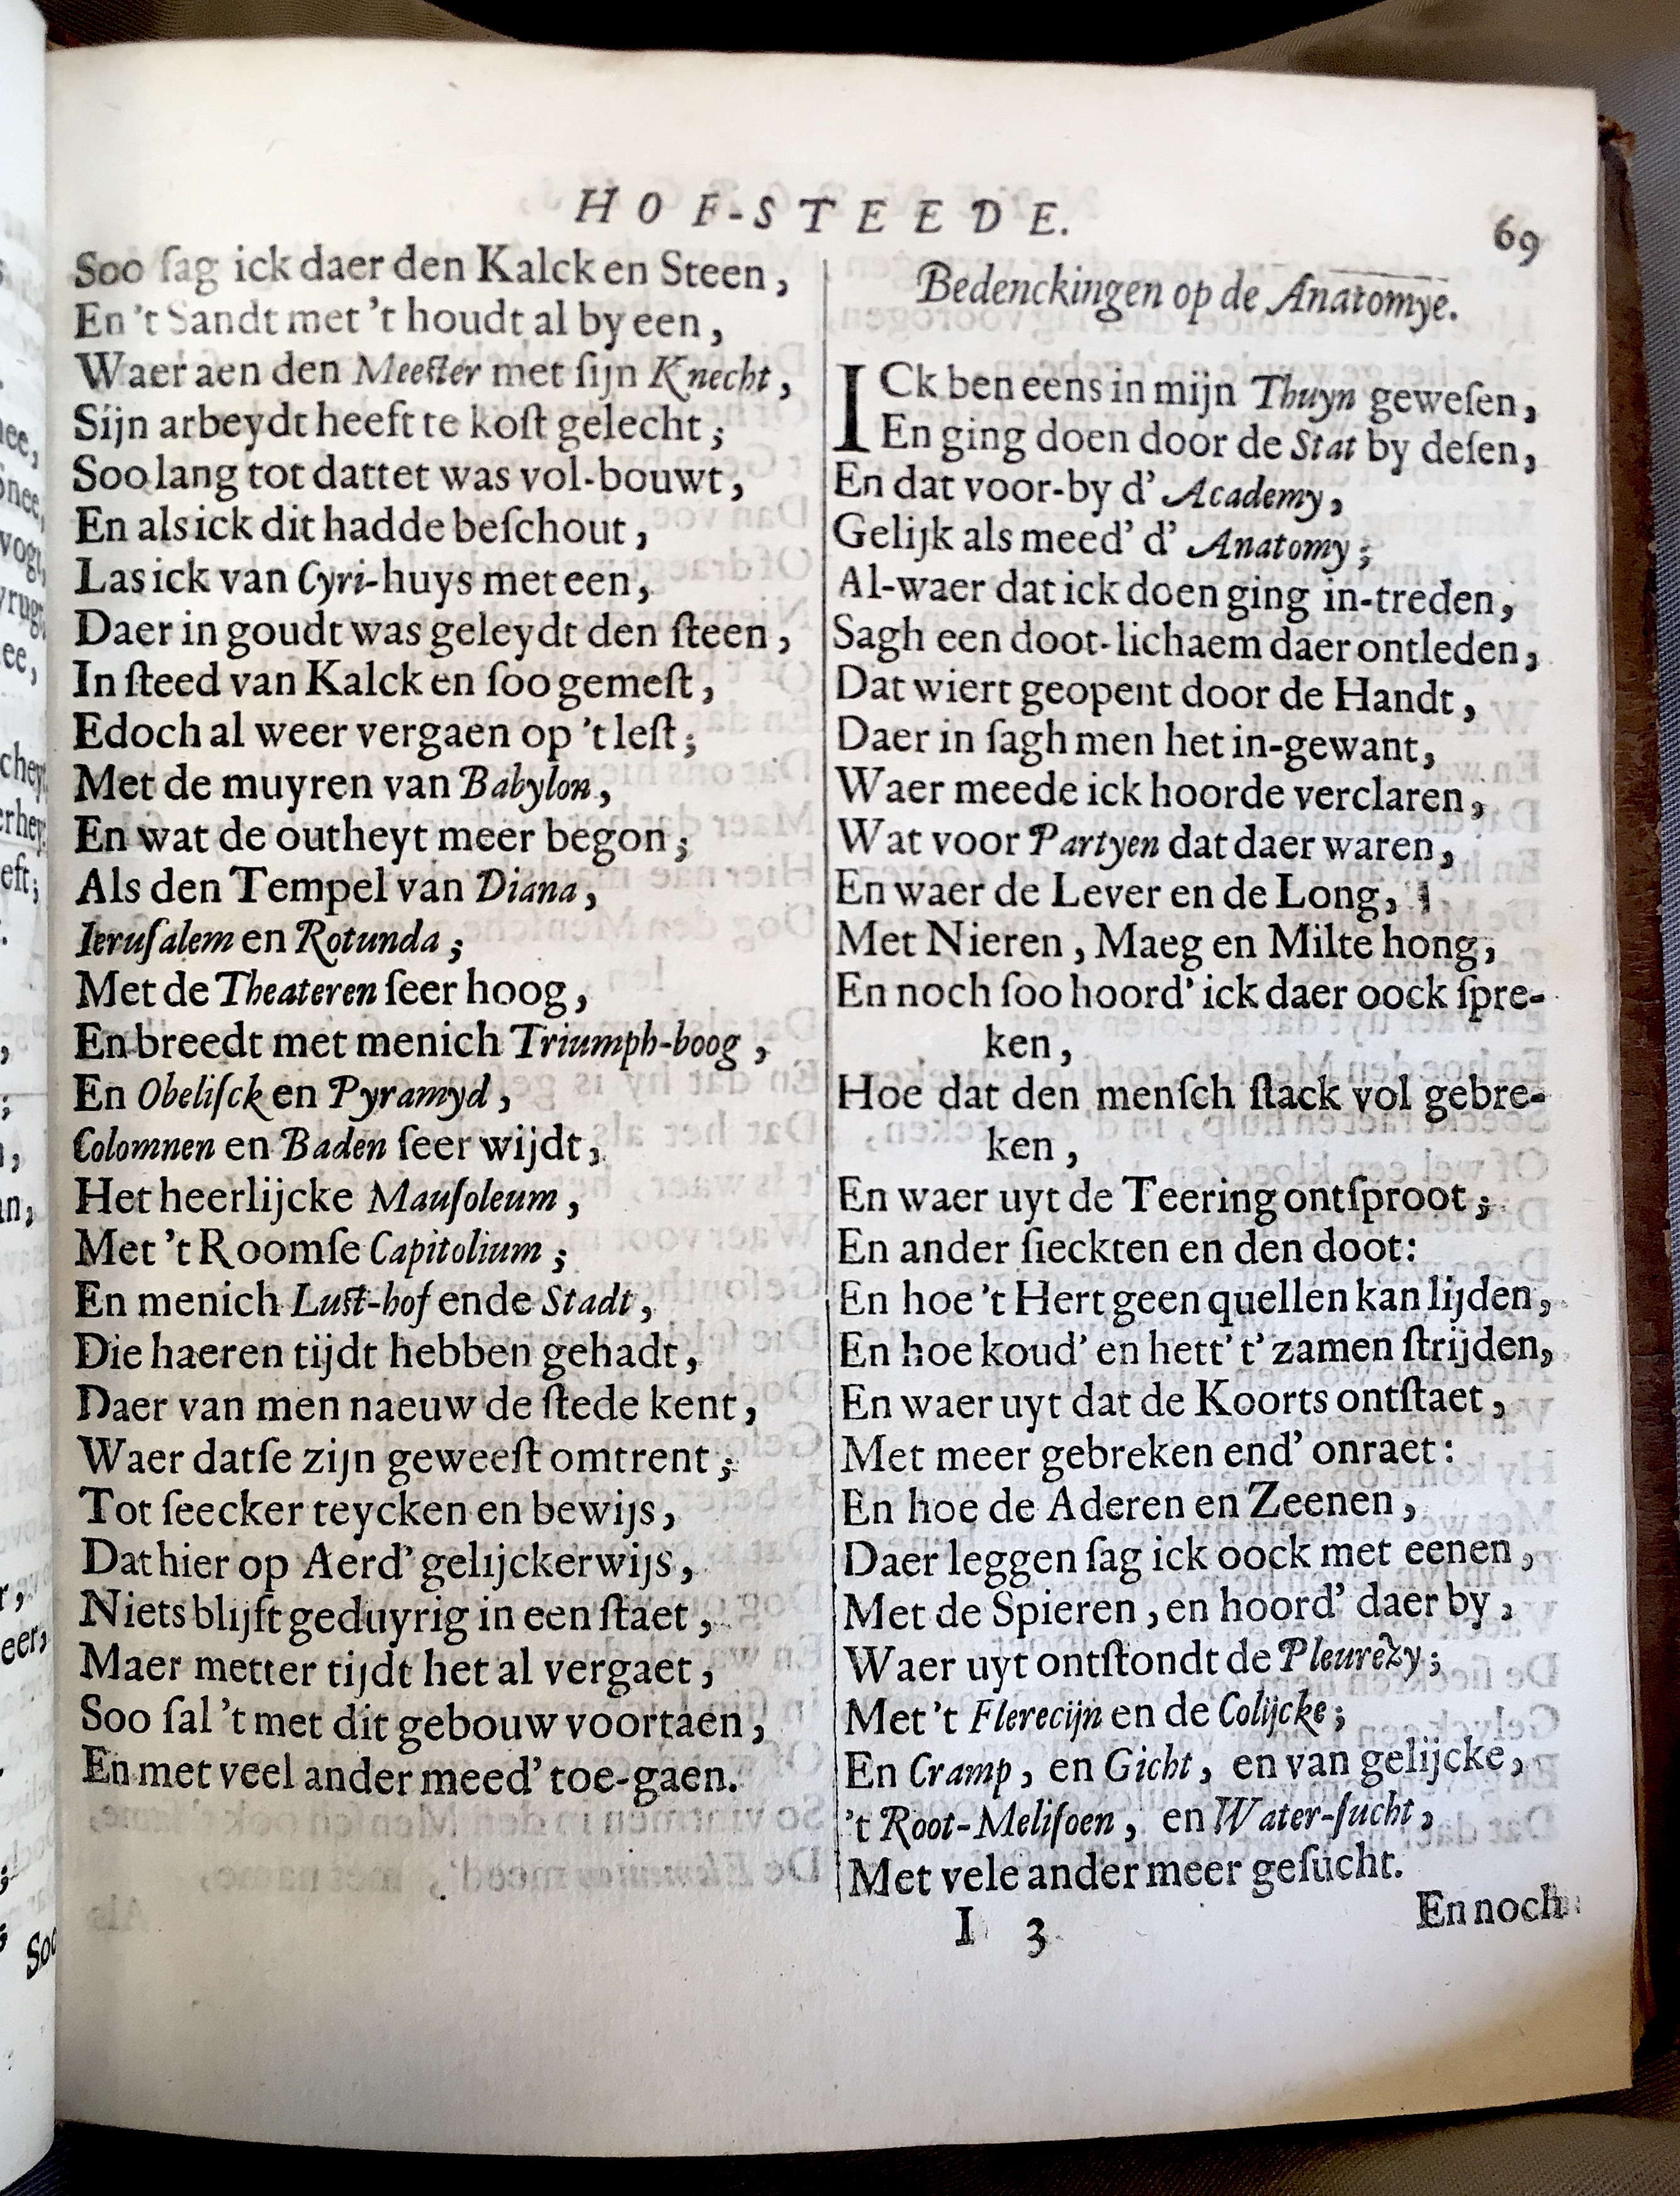 HOF-STEEDE.
69
Soo ſag ick daer den Kalck en Steen,
En 't Sandt met 't houdt al by een,
Waer aen den Meeſter met ſijn Knecht,
Sijn arbeydt heeft te koſt gelecht;
Soo lang tot dattet was vol-bouwt,
En als ick dit hadde beſchout,
Las ick van Cyri-huys met een,
Daer in goudt was geleydt den ſteen,
In ſteed van Kalck en ſoo gemeſt,
Edoch al weer vergaen op 't leſt;
Met de muyren van Babylon,
En wat de outheyt meer begon;
Als den Tempel van Diana,
Ieruſalem en Rotunda;
Met de Theateren ſeer hoog,
En breedt met menich Triumph-boog,
En Obeliſck en Pyramyd,
Colomnen en Baden ſeer wijdt,
Het heerlijcke Mauſoleum,
Met 't Roomſe Capitolium;
En menich Luſt-hof ende Stadt,
Die haeren tijdt hebben gehadt,
Daer van men naeuw de ſtede kent,
Waer datſe zijn geweeſt omtrent;
Tot ſeecker teycken en bewijs,
Dat hier op Aerd' gelijckerwijs,
Niets blijft geduyrig in een ſtaet,
Maer metter tijdt het al vergaet,
Soo ſal 't met dit gebouw voortaen,
En met veel ander meed' toe-gaen.
Bedenckingen op de Anatomye.
ICk ben eens in mijn Thuyn geweſen,
En ging doen door de Stat by deſen,
En dat voor-by d' Academy,
Gelijk als meed' d' Anatomy;
Al-waer dat ick doen ging in-treden,
Sagh een doot-lichaem daer ontleden,
Dat wiert geopent door de Handt,
Daer in ſagh men het in-gewant,
Waer meede ick hoorde verclaren,
Wat voor Partyen dat daer waren,
En waer de Lever en de Long,
Met Nieren, Maeg en Milte hong,
En noch ſoo hoord' ick daer oock ſpre-
ken,
Hoe dat den menſch ſtack vol gebre-
ken,
En waer uyt de Teering ontſproot;
En ander ſieckten en den doot:
En hoe 't Hert geen quellen kan lijden,
En hoe koud' en hett' t' zamen ſtrijden,
En waer uyt dat de Koorts ontſtaet,
Met meer gebreken end' onraet:
En hoe de Aderen en Zeenen,
Daer leggen ſag ick oock met eenen,
Met de Spieren, en hoord' daer by,
Waer uyt ontſtondt de Pleurêzy;
Met 't Flerecijn en de Colijcke;
En Cramp, en Gicht, en van gelijcke,
't Root-Meliſoen, en Water-ſucht,
Met vele ander meer geſucht.
I 3
En noch